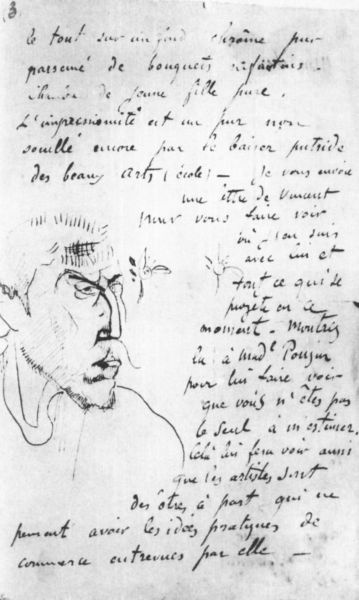 3
le tout sur un fond chrôme pur
parsemé de bouquets enfantins.
Chambre de jeune fille pure.
L'impressioniste est un pur non
souillé encore par le baiser putride
des beaux arts (école) — Je vous envoie
une lettre de Vincent
pour vous faire voir
où j'en suis
avec lui et
tout ce qui se
projete en ce
moment. Montrez
la à Madl
pour lui faire voir
que vous n'êtes pas
le seul a m'estimer.
Celà lui fera voir aussi
que les artistes sont
des êtres à part qui ne
peuvent avoir les idées pratiques de
commerce entrevues par elle —